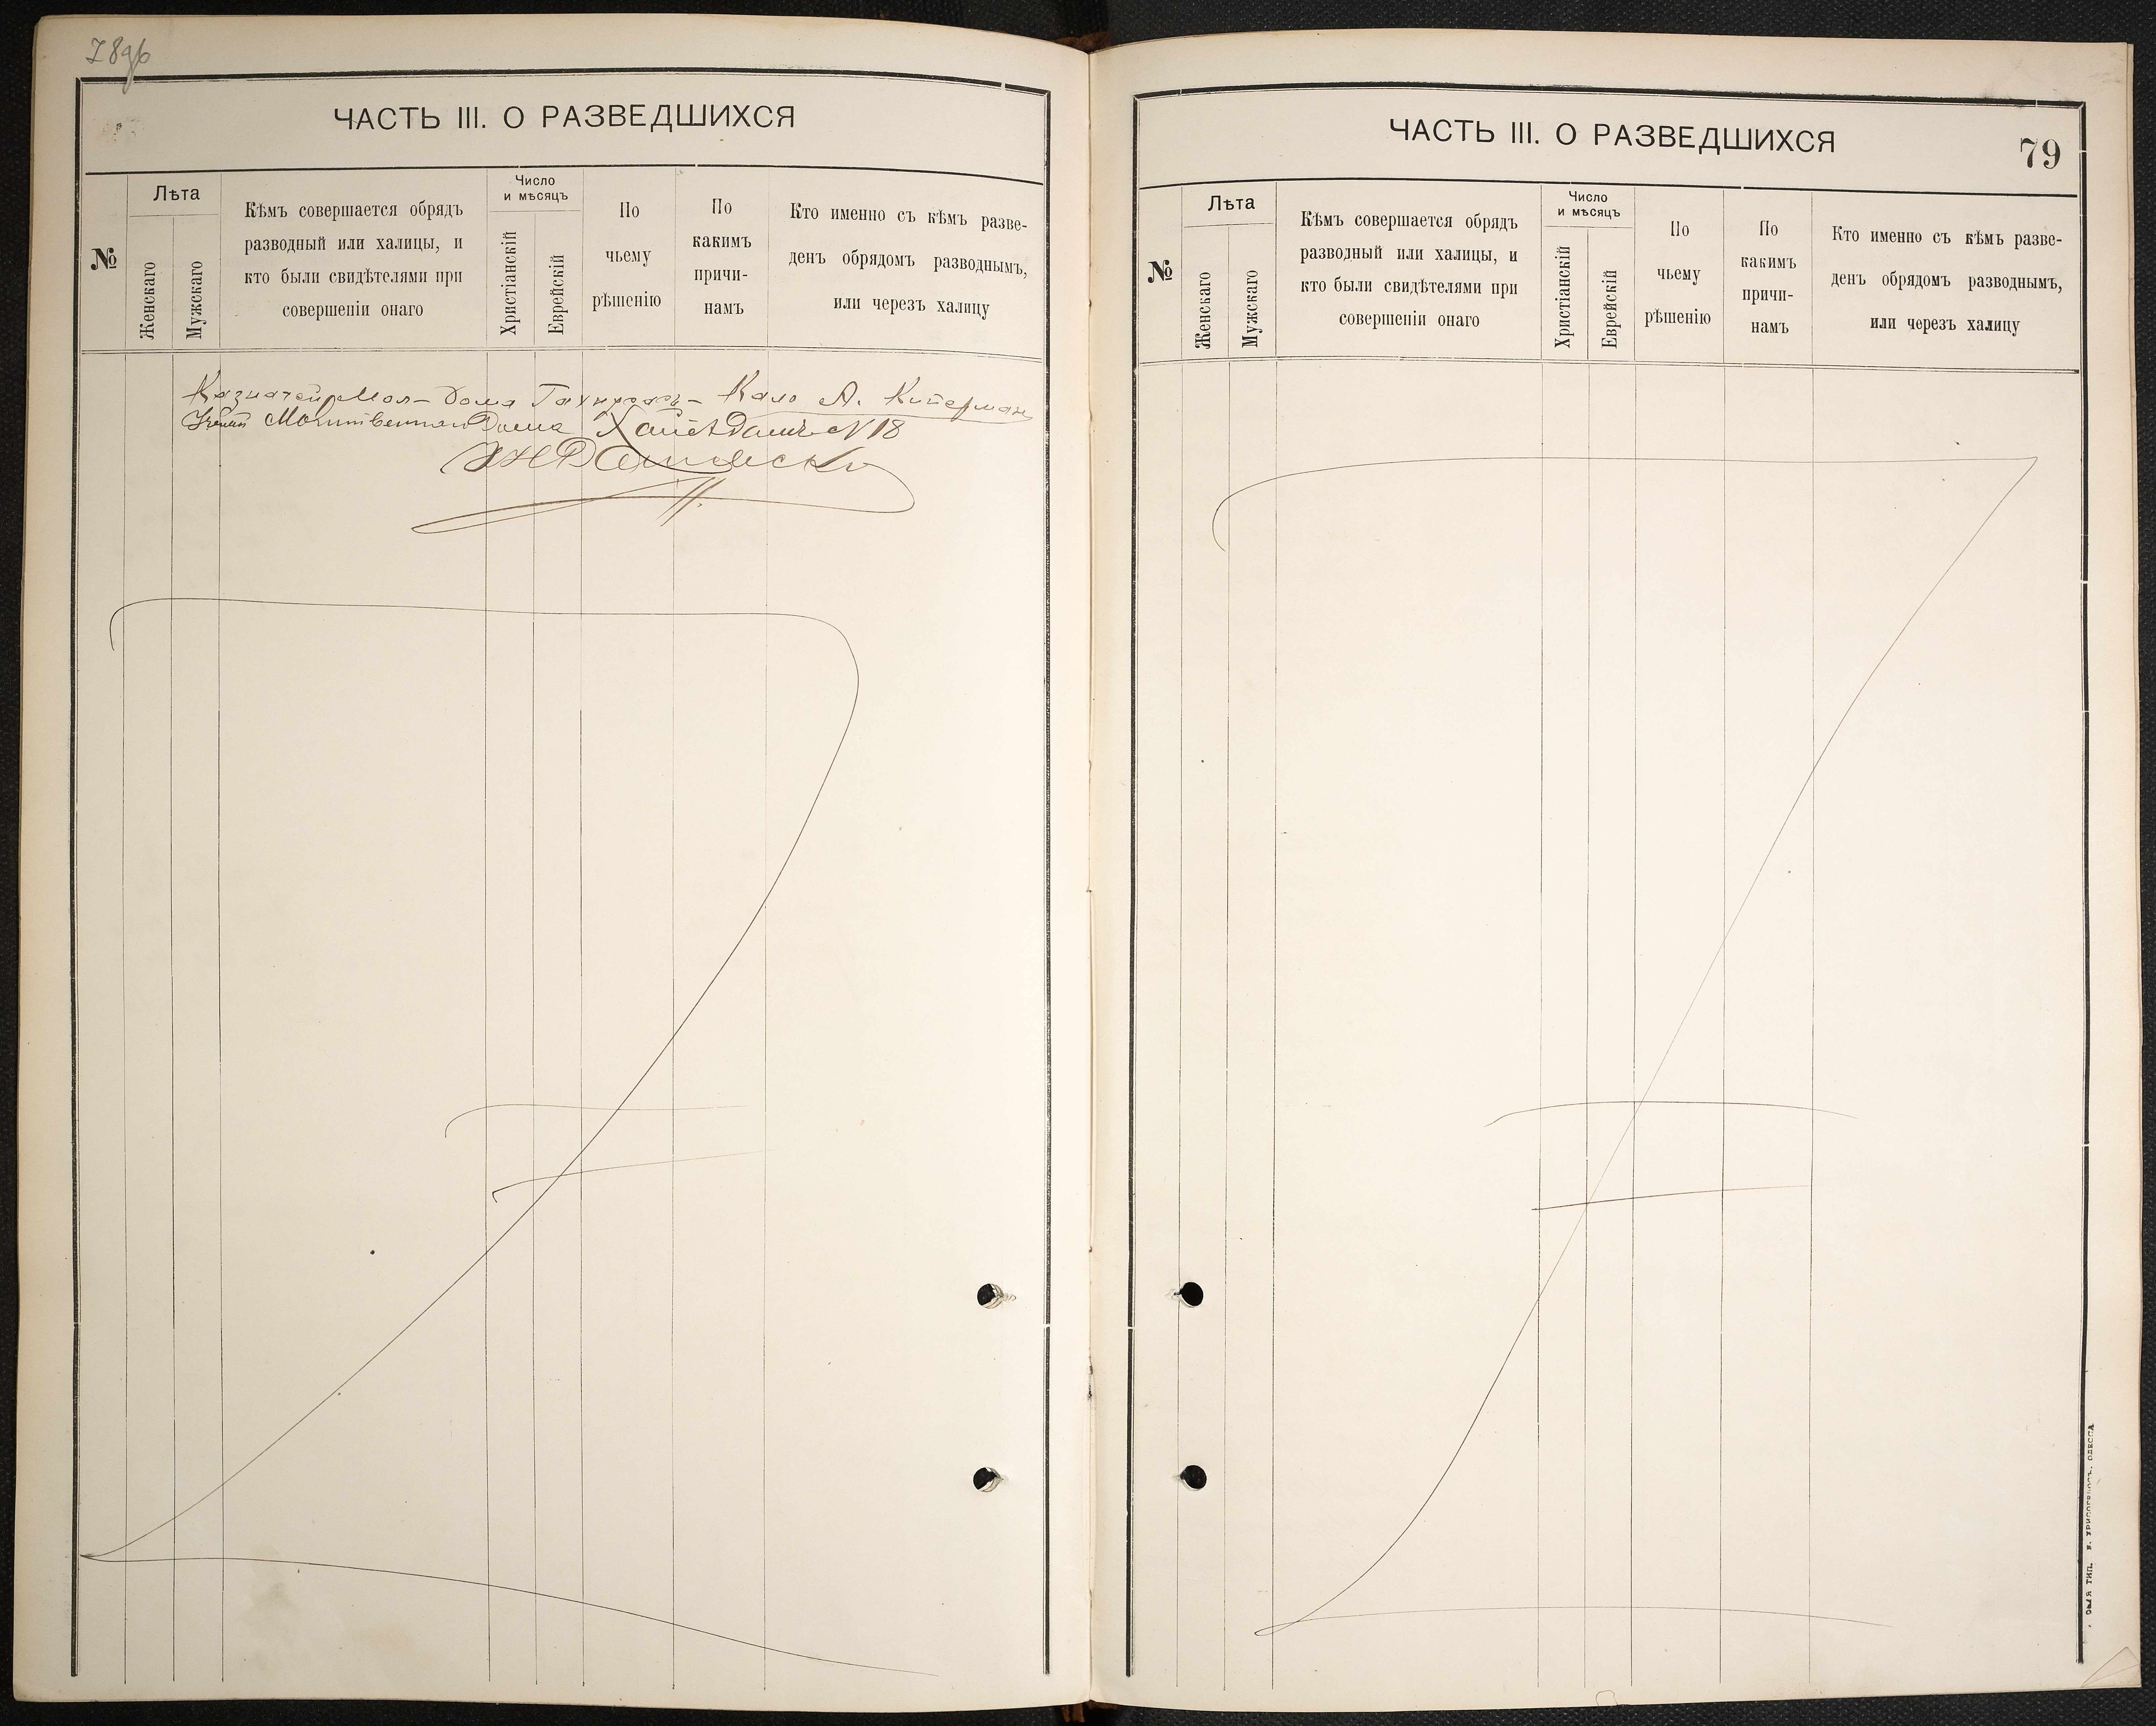 78об
ЧАСТЬ III. О РАЗВЕДШИХСЯ
№
Лѣта
Женскаго
Мужскаго
Кѣмъ совершается обрядъ
разводный или халицы, и
кто были свидѣтелями при
совершеніи онаго
Число
и мѣсяцъ
Христіанскій
Еврейскій
По
чьему
рѣшенію
По
какимъ
причи-
намъ
Кто именно съ кѣмъ разве-
денъ обрядомъ разводнымъ,
или черезъ халицу
Казначей Мол- Дома А. Киперман
Молитвеннаго Дома Хаие Адамъ N 18
ЧАСТЬ III. О РАЗВЕДШИХСЯ
79
№
Лѣта
Женскаго
Мужскаго
Кѣмъ совершается обрядъ
разводный или халицы, и
кто были свидѣтелями при
совершеніи онаго
Число
и мѣсяцъ
Христіанскій
Еврейскій
По
чьему
рѣшенію
По
какимъ
причи-
намъ
Кто именно съ кѣмъ разве-
денъ обрядомъ разводнымъ,
или черезъ халицу
ТИП. ОДЕССА